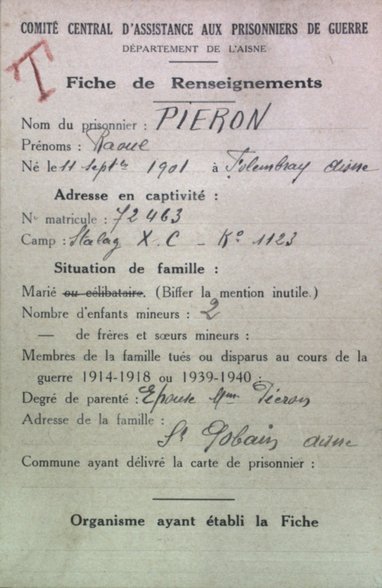 COMITÉ CENTRAL D'ASSISTANCE AUX PRISONNIERS DE GUERRE
DÉPARTEMENT DE L'AISNE
T
Fiche de Renseignements
Nom du prisonnier : PIERON
Prénoms : Raoul
Né le 11 Septbre 1901 à Folembray aisne
Adresse en captivité :
No matricule : 72463
Camp : Stalag X.C - Ko 1123
Situation de famille :
Marié ou célibataire. (Biffer la mention inutile.)
Nombre d'enfants mineurs : 2
— de frères et sœurs mineurs :
Membres de la famille tués ou disparus au cours de la
guerre 1914-1918 ou 1939-1940 :
Degré de parenté : Epouse Mme Pieron
Adresse de la famille :
St Gobain aisne
Commune ayant délivré la carte de prisonnier :
Organisme ayant établi la Fiche